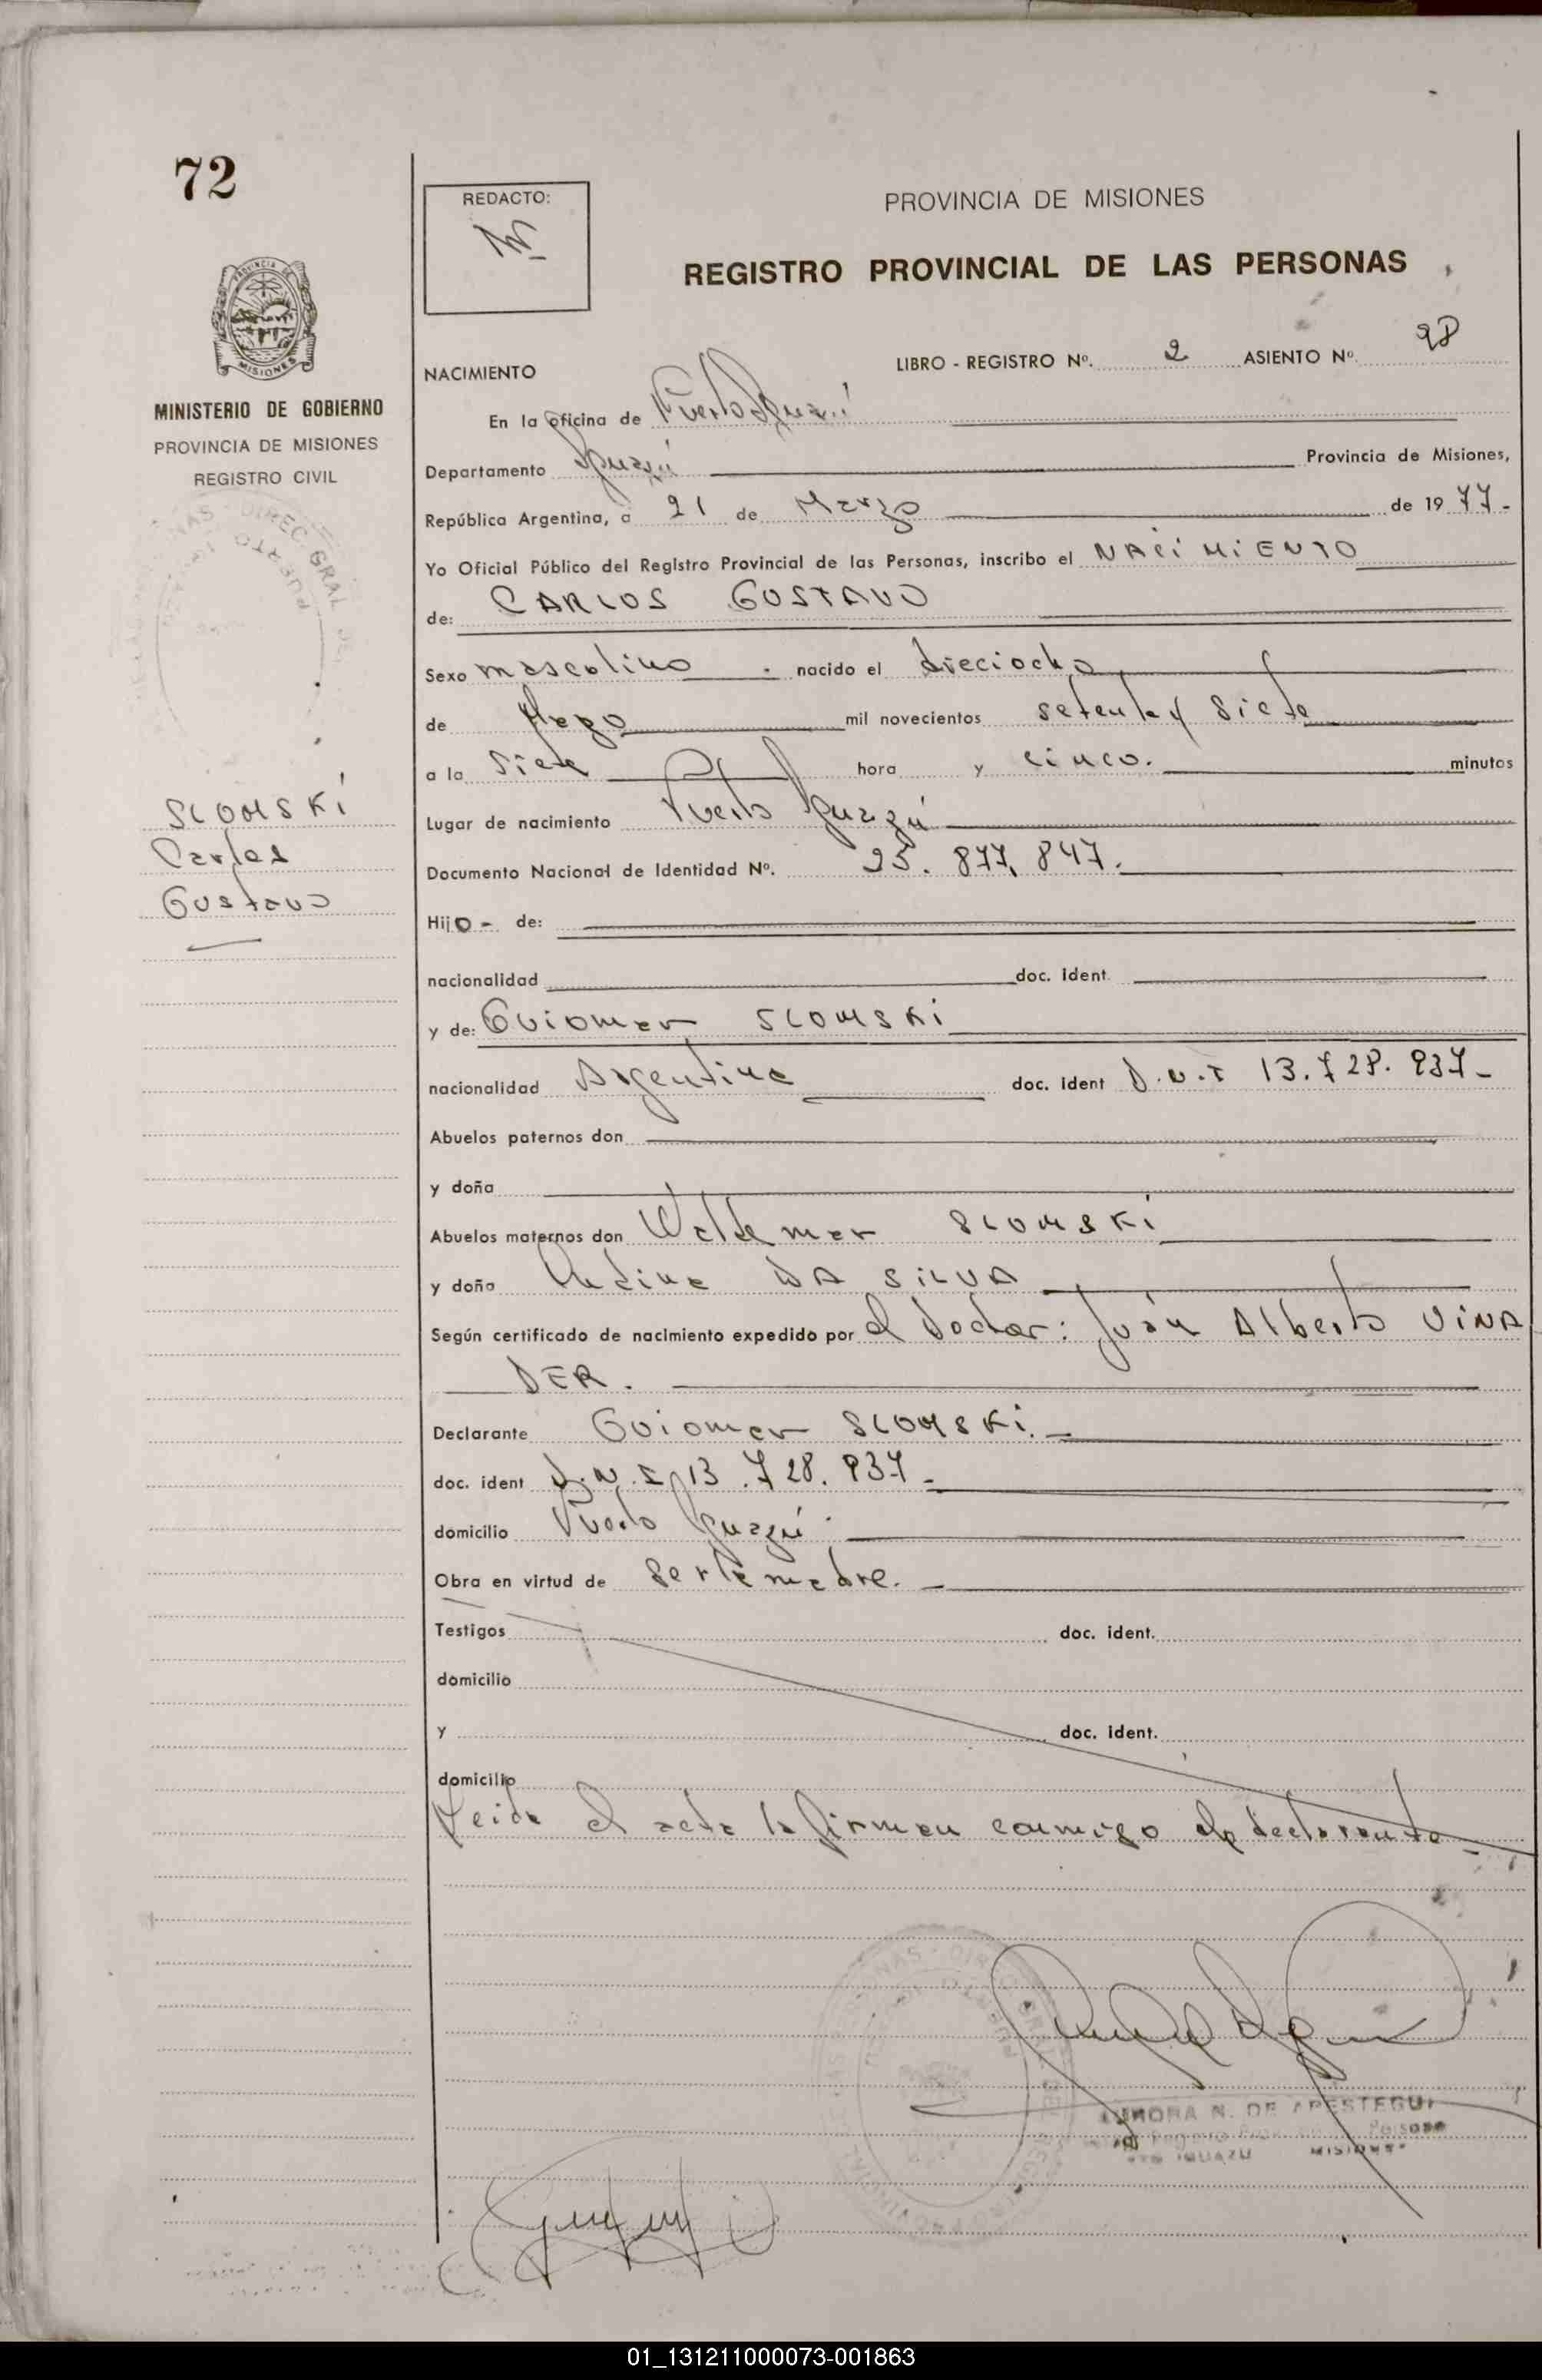 72
REDACTO:
PROVINCIA DE MISIONES
REGISTRO PROVINCIAL DE LAS PERSONAS
MISIONES
MINISTERIO DE GOBIERNO
PROVINCIA DE MISIONES
REGISTRO CIVIL
SLOMSKi
Carlos
Gustavo
LIBRO - REGISTRO Nº. 2 ASIENTO Nº. 98
NACIMIENTO
En la oficina de Puerto Iguazú
Departamento Iguazú Provincia de Misiones,
República Argentina, a 21 de Marzo de 1977-
Yo Oficial Público del Registro Provincial de las Personas, inscribo el NACiMiENTO
de: CARLOS GUSTAVO
Sexo masculino . nacido el dieciocho
de mil novecientos setenta y siete
a la siete hora y cinco. minutos
Lugar de nacimiento Puerto Iguazú
Documento Nacional de Identidad Nº. 25.877.847.
Hijo- de:
nacionalidad doc. ident.
y de: Guiomar SLOMSKi
nacionalidad Argentina doc. ident D.N.I 13.728.937-
Abuelos paternos don
y doña
Abuelos maternos don Waldemar SLOMSKi
y doña DA SiLVA
Según certificado de nacimiento expedido por el Doctor: Juán Alberto ViNA
DER.
Declarante Guiomar SLOMSKi.-
doc. ident D.N.I 13.728.937-
domicilio Puerto Iguazú.
Obra en virtud de ser la madre.-
Testigos doc. ident.
domicilio
y doc. ident.
domicilio
Leida el acta la firman conmigo el declarante-
N. DE APESTEGUI
IGUAZU MISIONES
01_131211000073-001863